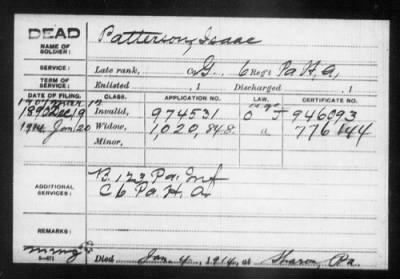 DEAD
NAME OF SOLDIER: Patterson, Isaac
SERVICE: Late rank, Co. G, 6 Reg't Pa H. A.
TERM OF SERVICE: Enlisted , 1 Discharged , 1
DATE OF FILING. CLASS. APPLICATION NO. LAW. CERTIFICATE NO.
1890 Dec 19 Invalid, 974531 946093
1914 Jan 20 Widow, 1,020,848. 776144
Minor,
ADDITIONAL SERVICES: B. 123 Pa. Inf
C 6 Pa. H. A.
REMARKS:
Died Jan. 4, 1914, at Sharon, Pa.